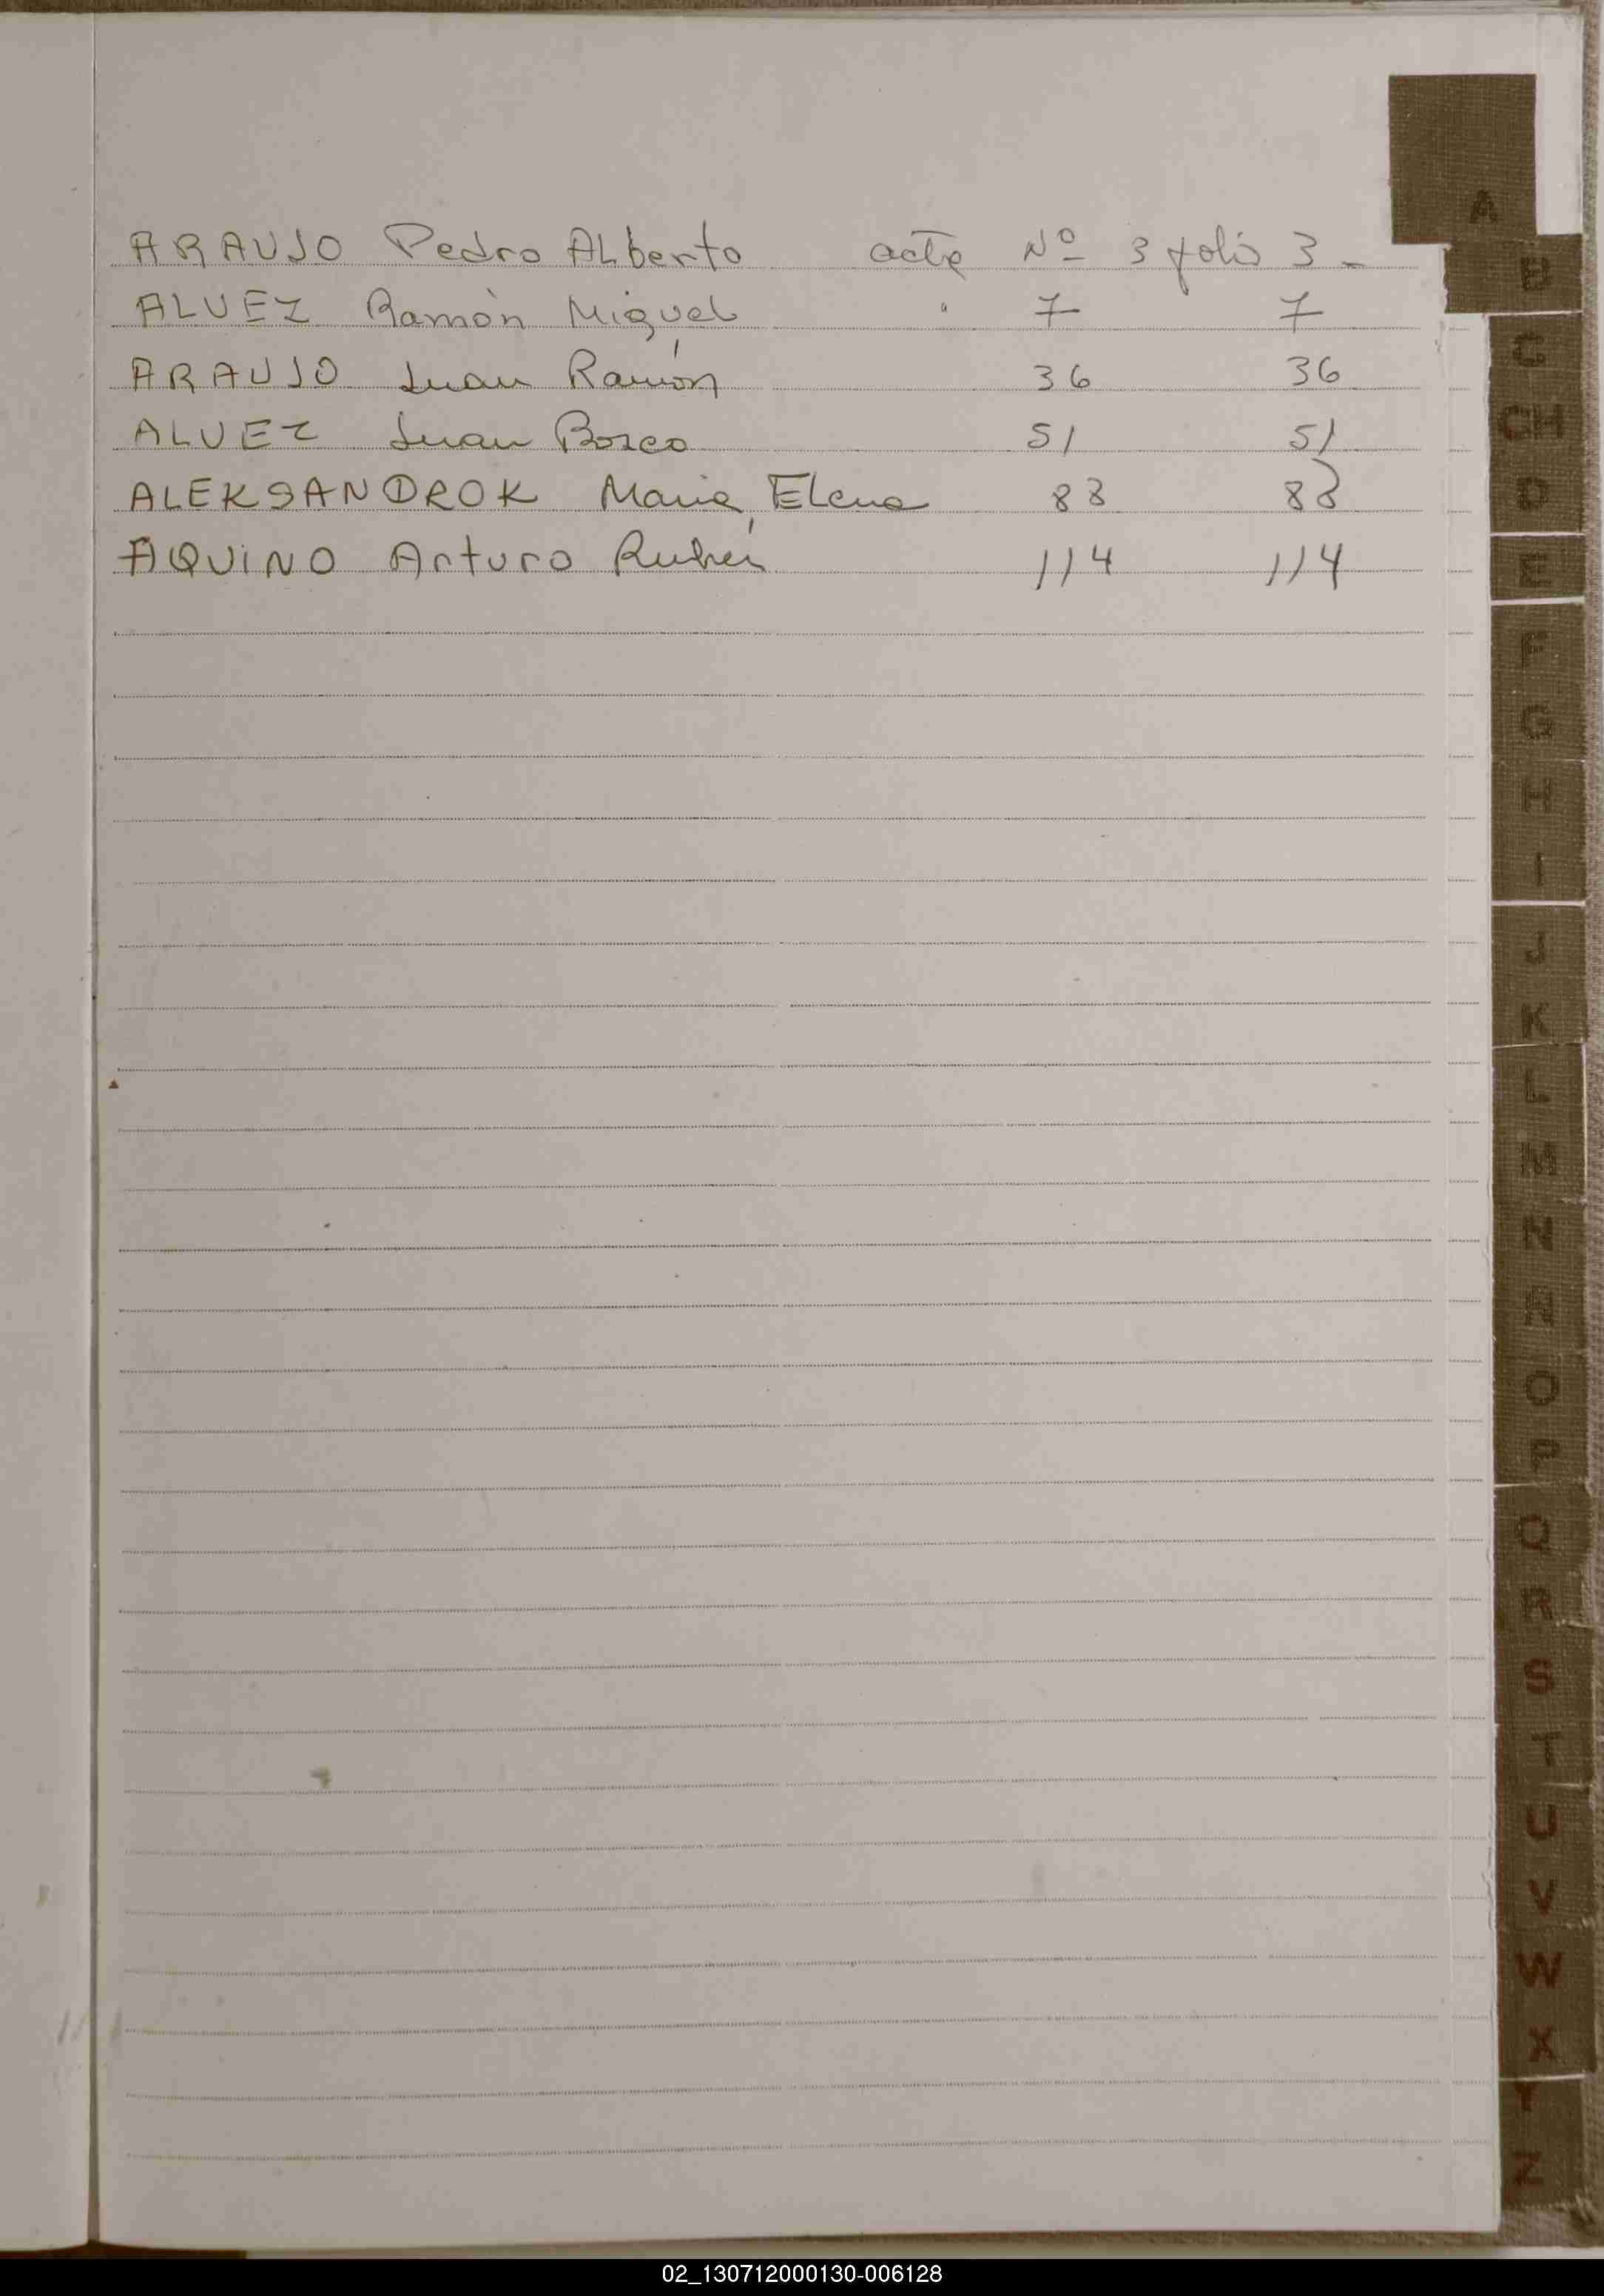 ARAUJO Pedro ALberto acta Nº 3 folio 3 -
ALVEZ Ramón Miguel " 7 7
ARAUJO Juan Ramón 36 36
ALVEZ Juan Bosco 51 51
ALEKSANDROK Maria Elena 83 83
AQUiNO Arturo Rubén 114 114
A
B
C
CH
D
E
F
G
H
I
J
K
L
M
N
Ñ
O
P
Q
R
S
T
U
V
W
X
Y
Z
02_130712000130-006128